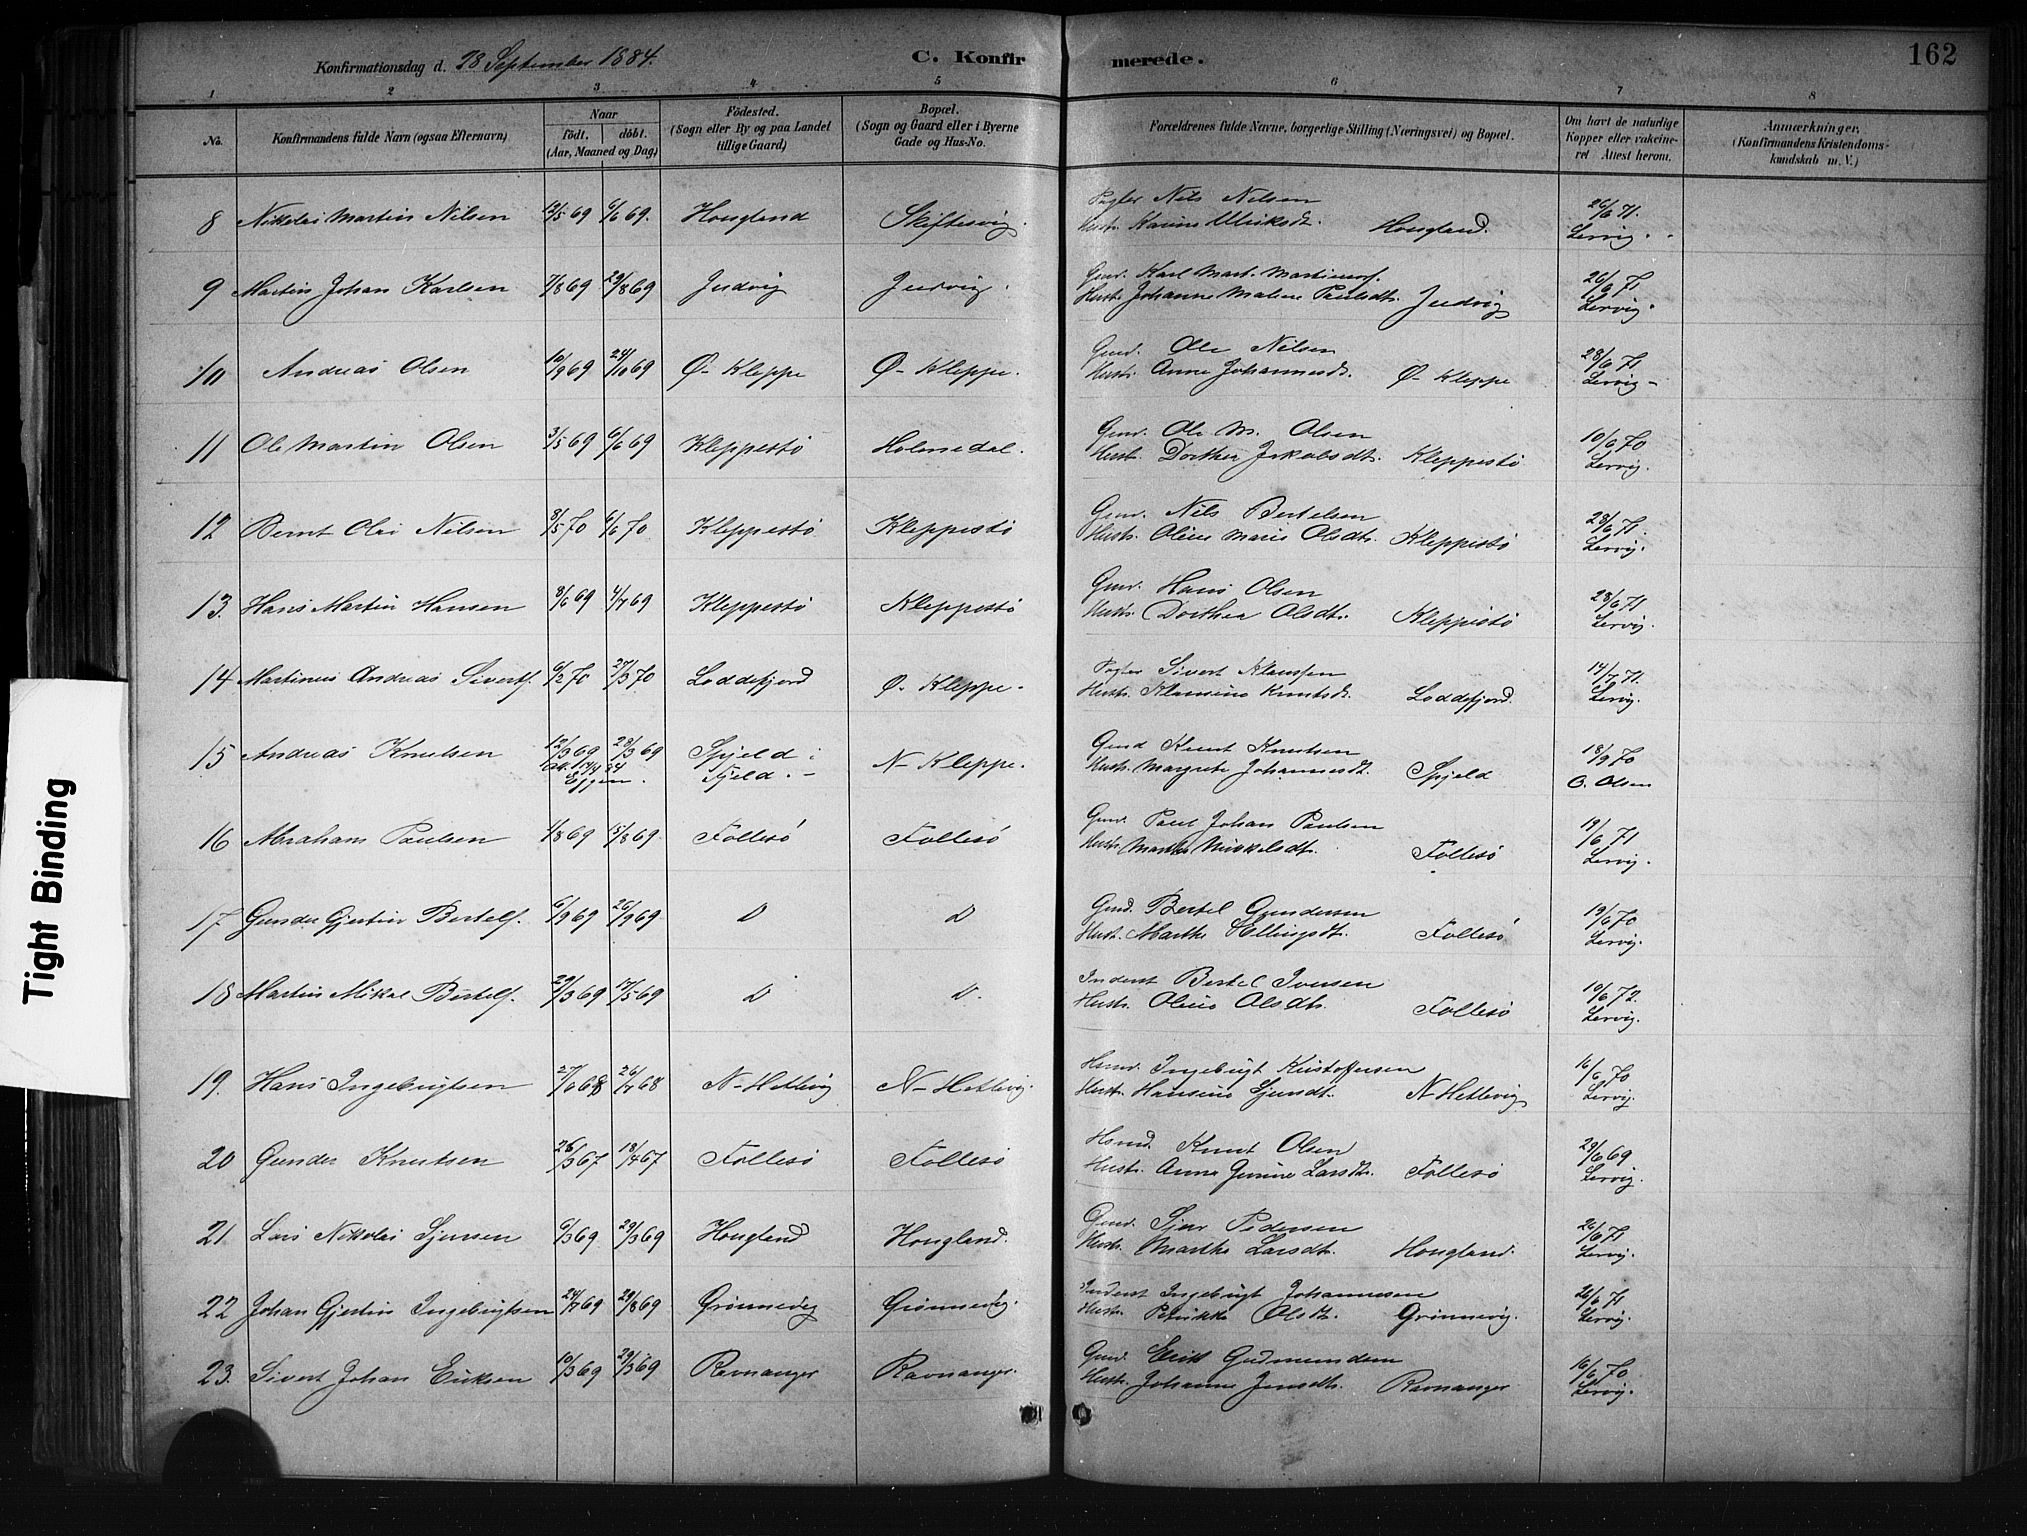 Konfirmationsdag d. 28 September 1884.
C. Konfirmerede.
162
1 2 3 4 5 6 7 8
No.
Konfirmandens fulde Navn (ogsaa Efternavn)
Naar
födt. döbt.
(Aar, Maaned og Dag)
Födested.
(Sogn eller By og paa Landet
tillige Gaard)
Bopæl.
(Sogn og Gaard eller i Byerne
Gade og Hus-No.
Forældrenes fulde Navne, borgerlige Stilling (Næringsvei) og Bopæl.
Om havt de naturlige
Kopper eller vakcine-
ret Attest herom.
Anmærkninger.
(Konfirmandens Kristendoms-
kundskab m. V.)
8 Nikolai Martin Nilsen 12/5 69 6/6 69. Hougland Skiftesvig.
Nils Nilsen
Hustr. Hougland. 26/6 71. Lervig.
9 Martin Johan Karlsen 7/8 69 29/8 69 Judvig Judvig.
Gmd. Karl Mart. Martinusf.
Hustr. Johanne Malene Paulsdt. Judvig 26/6 71 Lervig.
10 Andreas Olsen 10/9 69 24/10 69 Ø- Kleppe Ø- Kleppe.
Gmd. Ole Nilsen
Hustr. Anna Johannesdt. Ø- Kleppe 28/6 71 Lervig-
11 Ole Martin Olsen 3/5 69 6/6 69 Kleppestö Holmedal.
Gmd. Ole M. Olsen
Hustr. Dorthea Jakobsdt. Kleppestö 10/6 70 Lervig.
12 Bernt Olai Nilsen 8/5 70 6/6 70 Kleppestö Kleppestö
Gmd. Nils Bertelsen
Hustr. Oline Marie Olsdt. Kleppestö 28/6 71. Lervig.
13. Hans Martin Hansen 8/6 69 4/7 69 Kleppestö Kleppestö
Gmd. Hans Olsen
Hustr. Dorthea Olsdt. Kleppestö 28/6 71 Lervig.
14 Martinus Andreas Sivertf. 6/2 70 27/3 70 Loddefjord Ø- Kleppe.
Sivert Klaussen
Hustr. Klausine Knutsdt. Loddefjord. 14/7 71. Lervig.
15 Andreas Knutsen 12/3 69 28/3 69 Spjeld i N- Kleppe.
Fjeld.-
Gmd Knut Knutsen
Hustr. Margrete Johannesdt. Spjeld 18/9 70 O. Olsen
16 Abraham Paulsen 1/8 69 15/8 69. Follesö Follesö
Gmd. Paul Johan Paulsen
Hustr. Martha Mikkelsdt. Follesö 19/6 71 Lervig.
17 Gunder Gjertin Bertelf. 6/9 69 26/9 69 D D
Gmd. Bertel Gundersen
Hustr. Martha Ellingsdt. Follesö 19/6 70 Lervig.
18 Martin Mikal Bertelf. 29/3 69 17/5 69 D D.
Inderst Bertel Iversen
Hustr. Oline Olsdt. Follesö 19/6 72. Lervig.
19. Hans Ingebrigtsen 27/6 68 26/7 68 N- Hetlevig N- Hetlevig.
Husmd. Ingebrigt Kristoffersen
Hustr. Hansine Sjursdt. N Hetlevig 16/6 70 Lervig.
20 Gunder Knutsen 26/3 67 18/4 67 Follesö Follesö
Husmd. Knut Olsen
Hustr. Anna Gurine Larsdt. Follesö 29/6 69 Lervig.
21. Lars Nikolai Sjursen 6/3 69 29/3 69 Hougland Hougland.
Gmd. Sjur Pedersen
Hustr. Martha Larsdt. Hougland. 26/6 71 Lervig.
22 Johan Gjertin Ingebrigtsen 24/7 69 29/8 69 Grönnevig Grönnevig.
Inderst Ingebrigt Johannesen
Hustr. Petrikke Olsdt. Grönnevig. 26/6 71 Lervig.
23. Sivert Johan Eriksen 10/3 69 29/3 69 Ravnanger Ravnanger.
Gmd. Erik Gudmundsen
Hustr. Johanne Jensdt. Ravnanger 16/6 70 Lervig.
Tight Binding